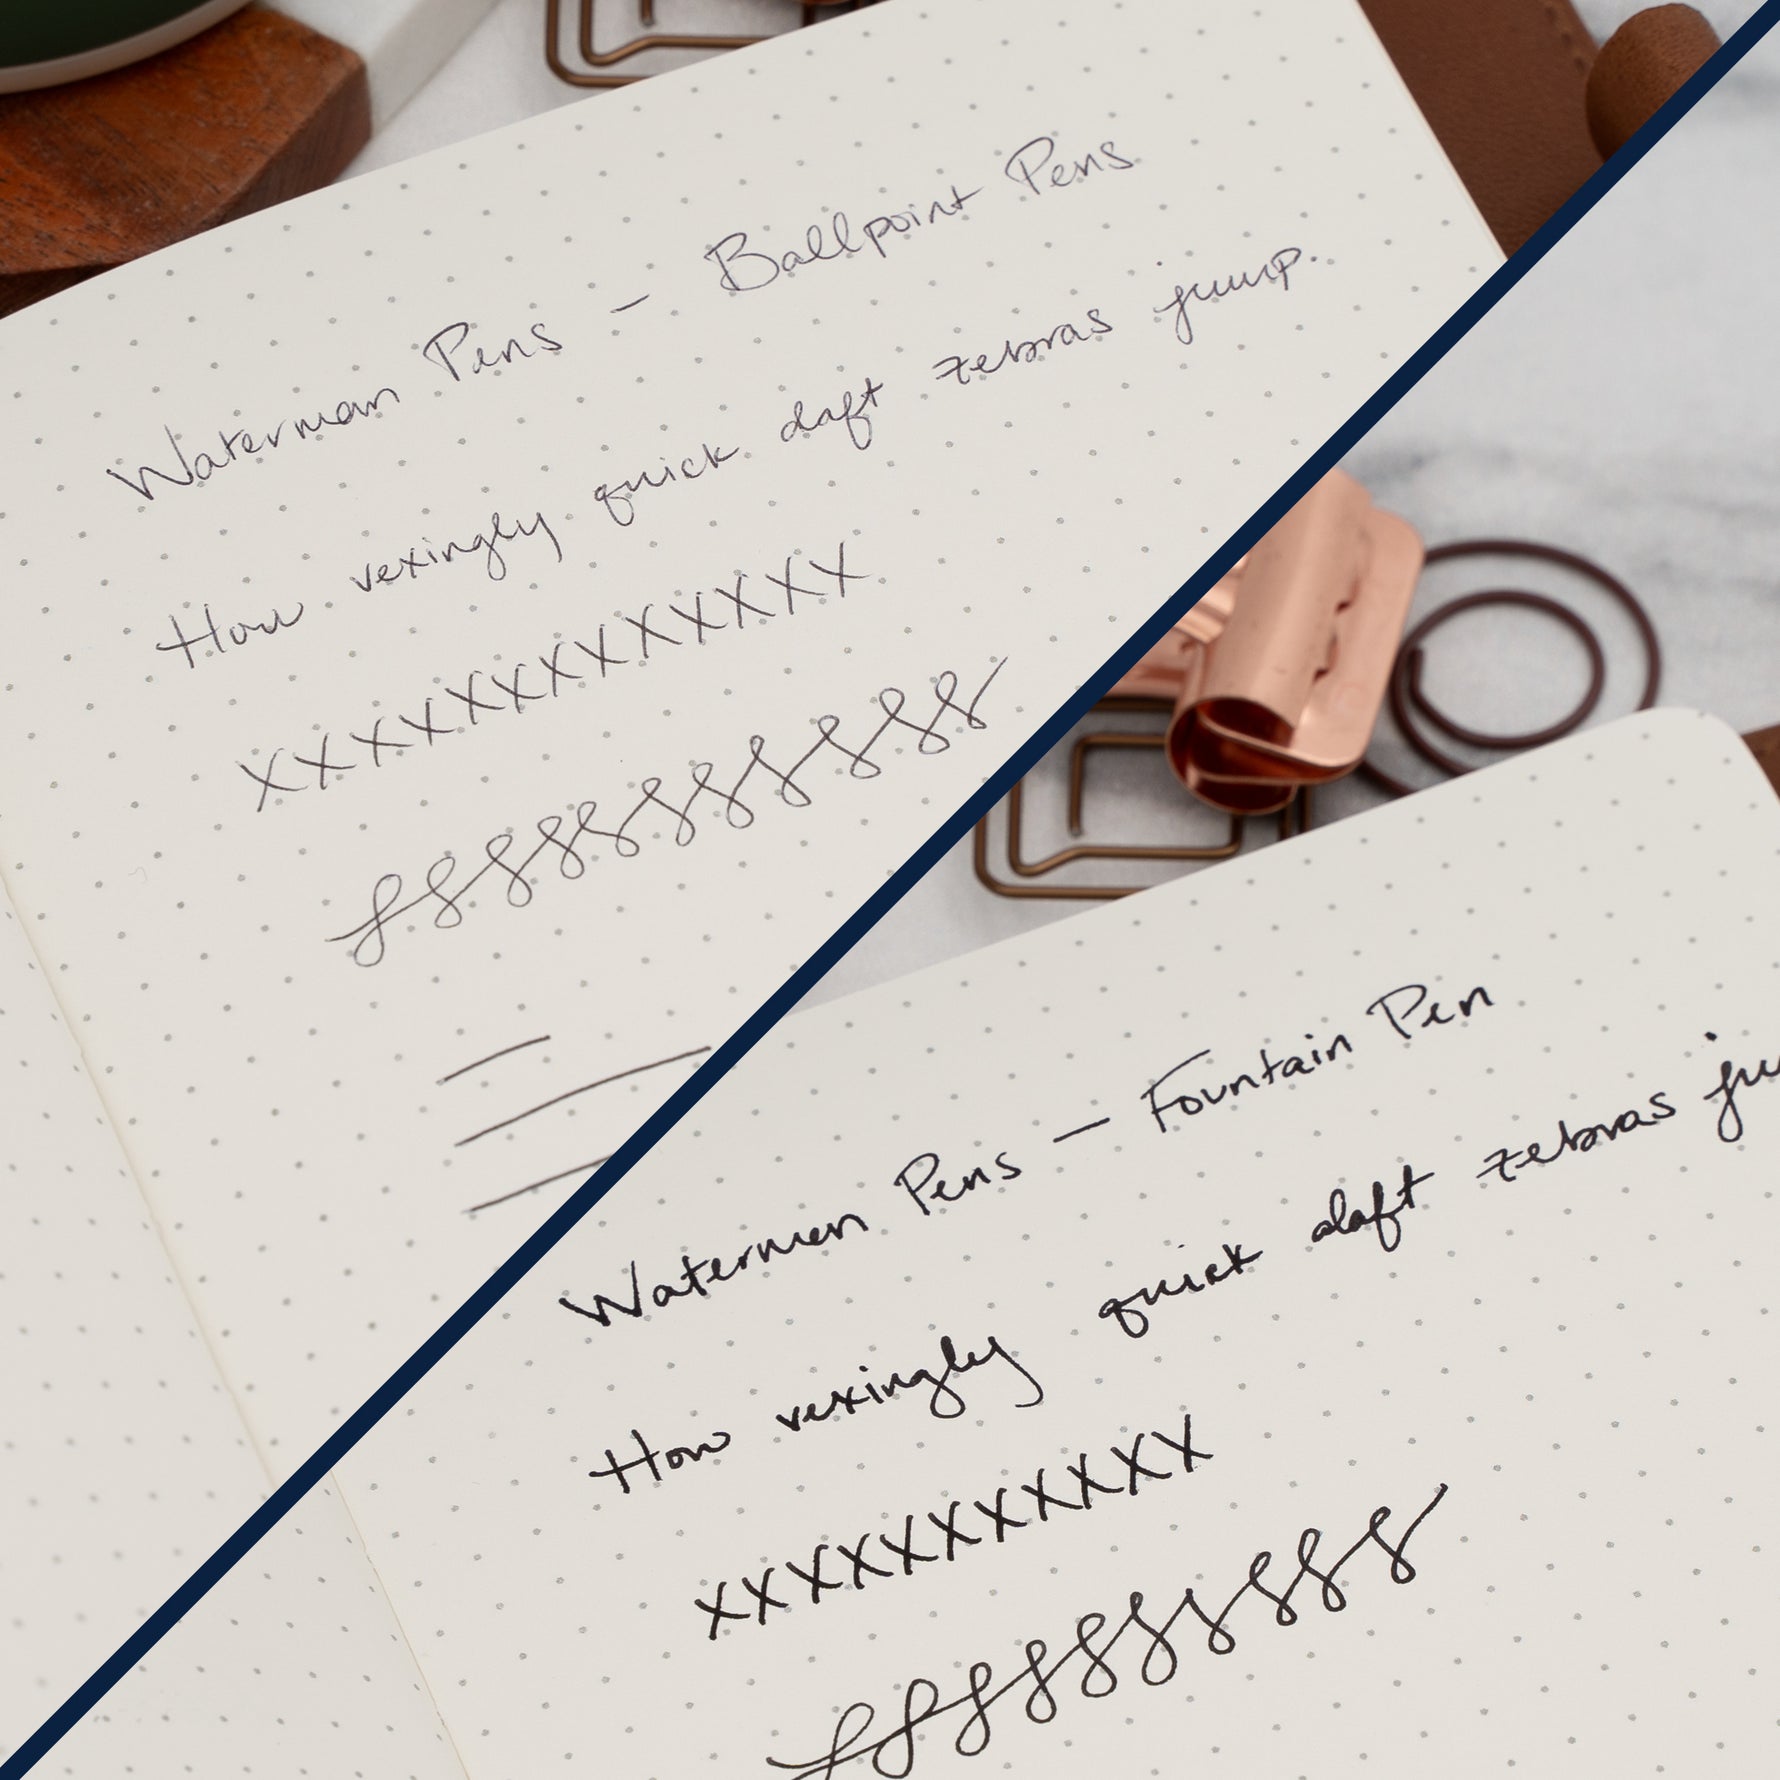 Waterman Pens – Ballpoint Pens
How vexingly quick daft zebras jump.
XXXXXXXXXXXXX
Waterman Pens – Fountain Pen
How vexingly quick daft zebras
XXXXXXXXXXX